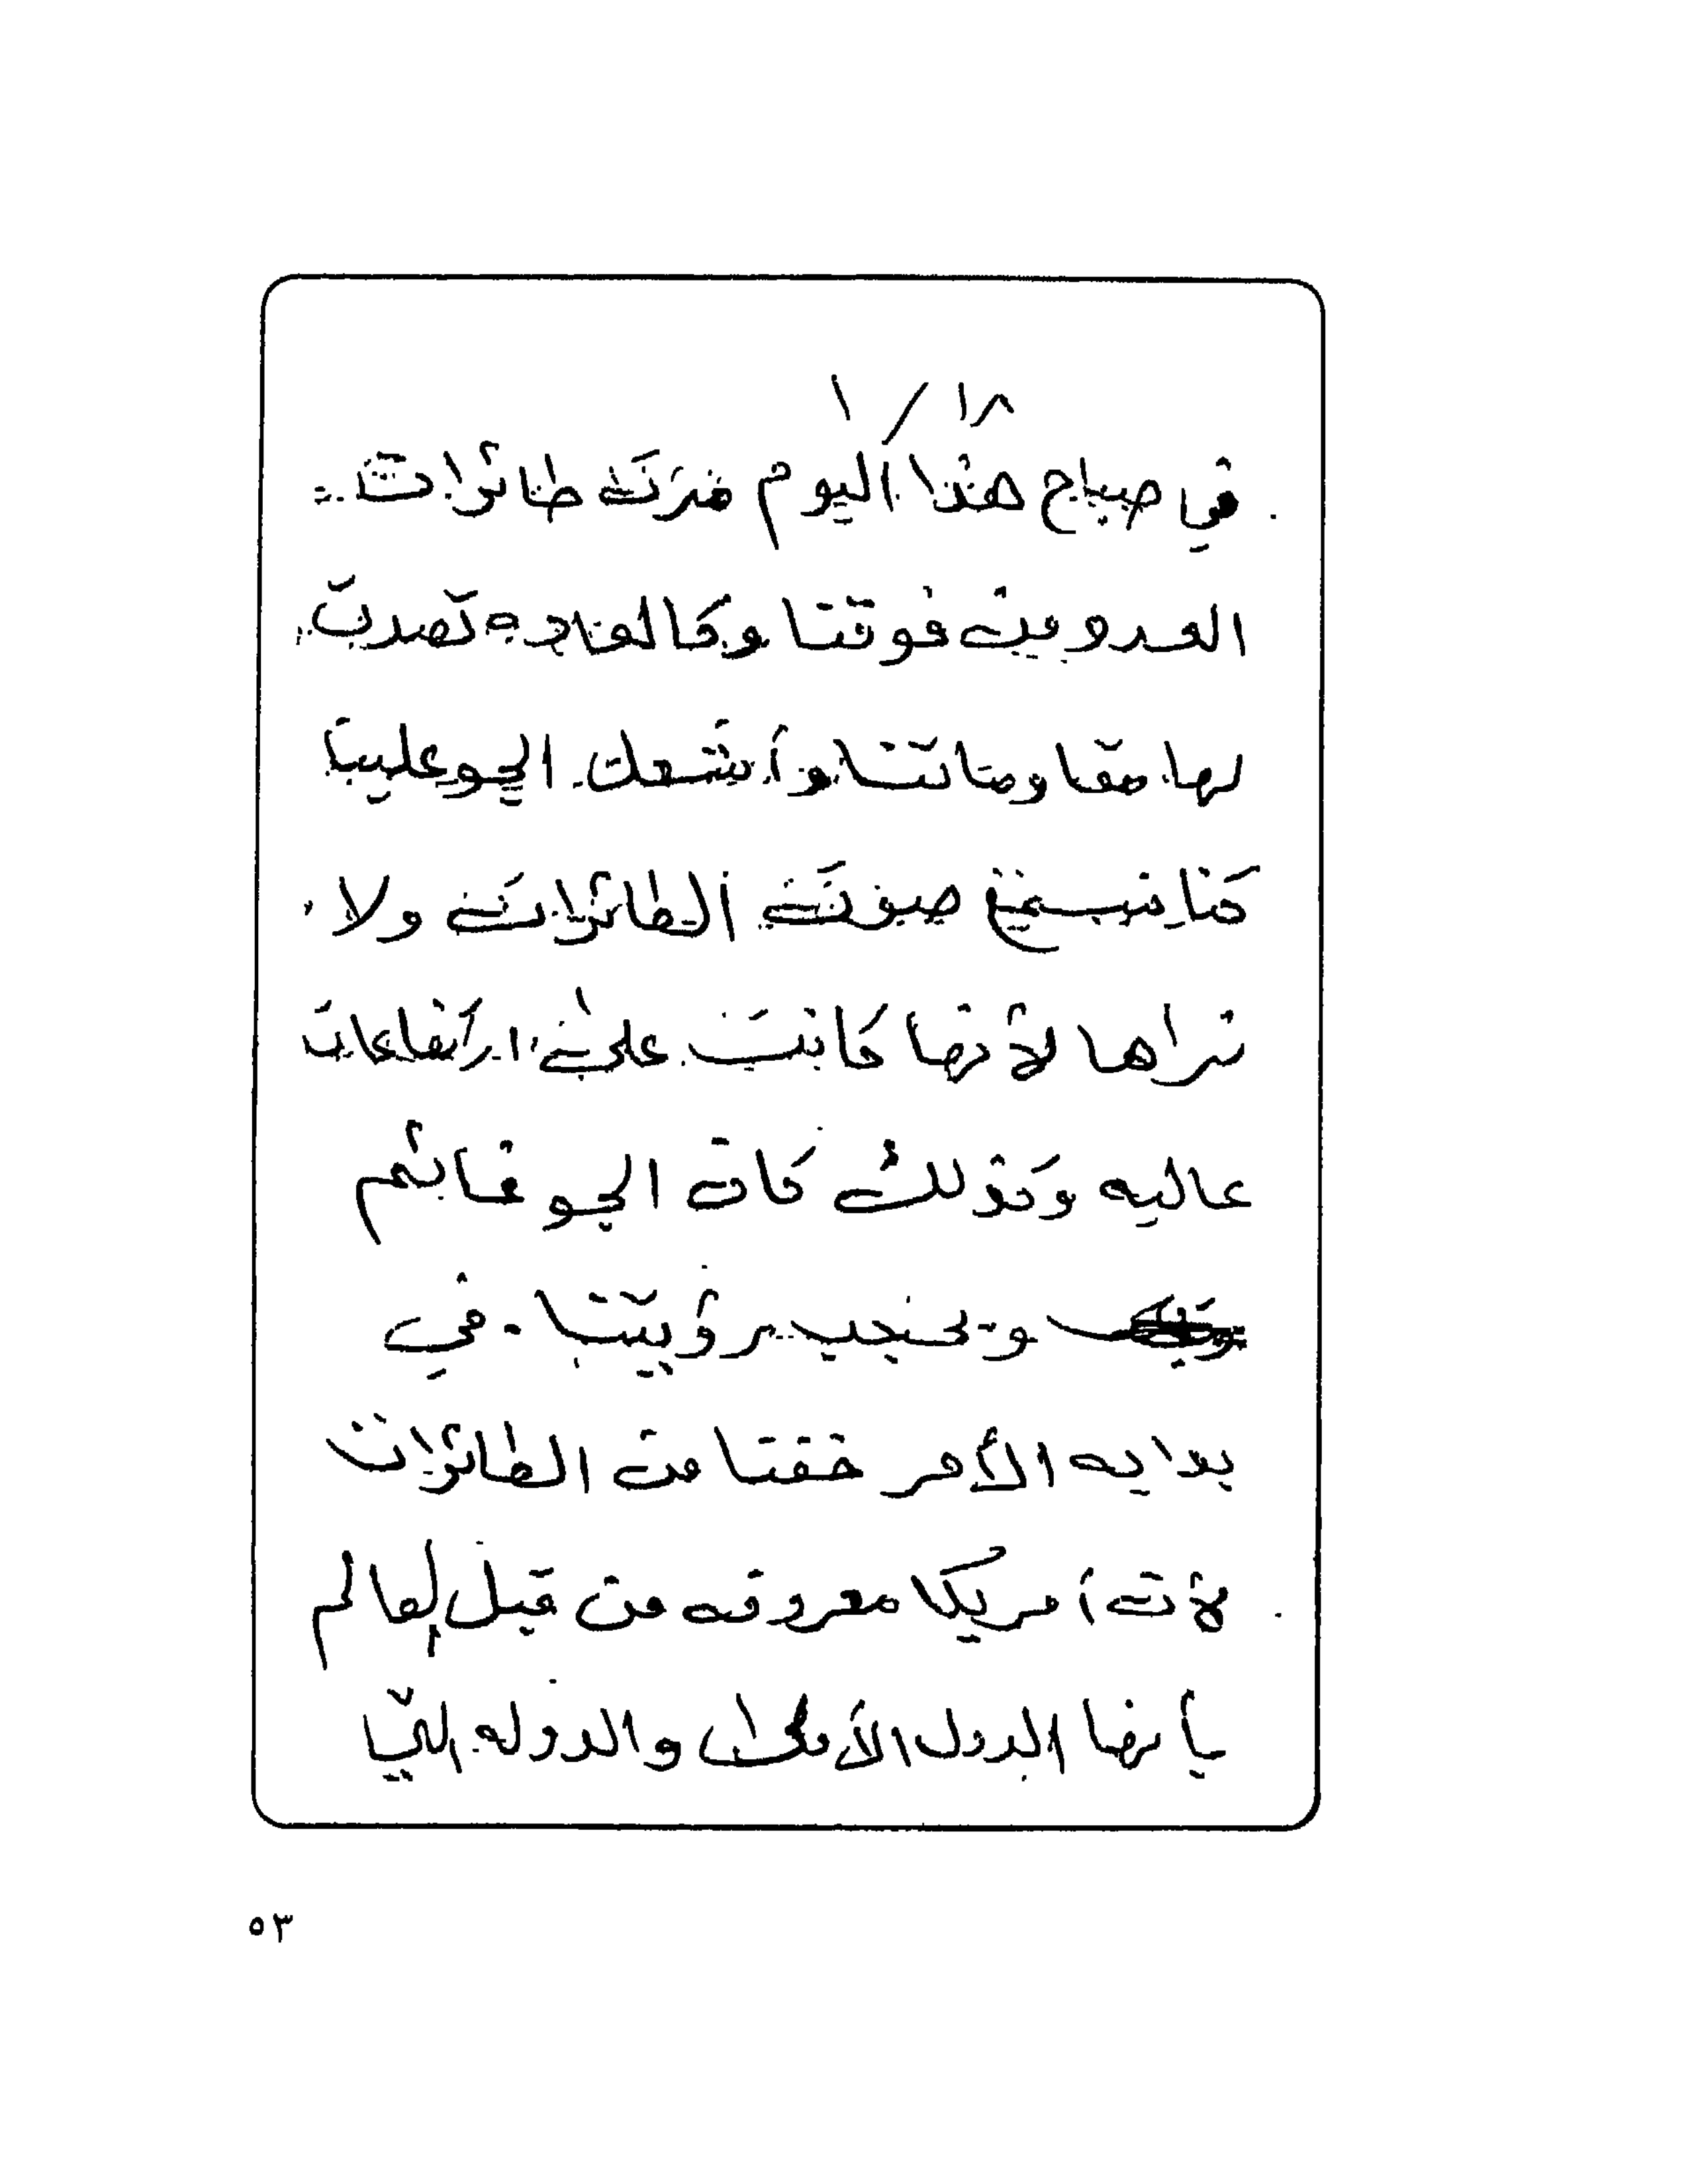 ١/١٨
في صباح هذا اليوم مرت طائرات
العدو من فوقنا وكالعاده تصدت
لها مقاوماتنا وأشعلت الجو عليها
كنا نسمع صوت الطائرات ولا
نراها لأنها كانت على ارتفاعات
عاليه وكذلك كان الجو غائم
ويحجب رؤيتنا . في
بدايه الأمر خفنا من الطائرات
لأن أمريكا معروفه من قبل العالم
بأنها الدول الأولى والدوله التي
٥٣